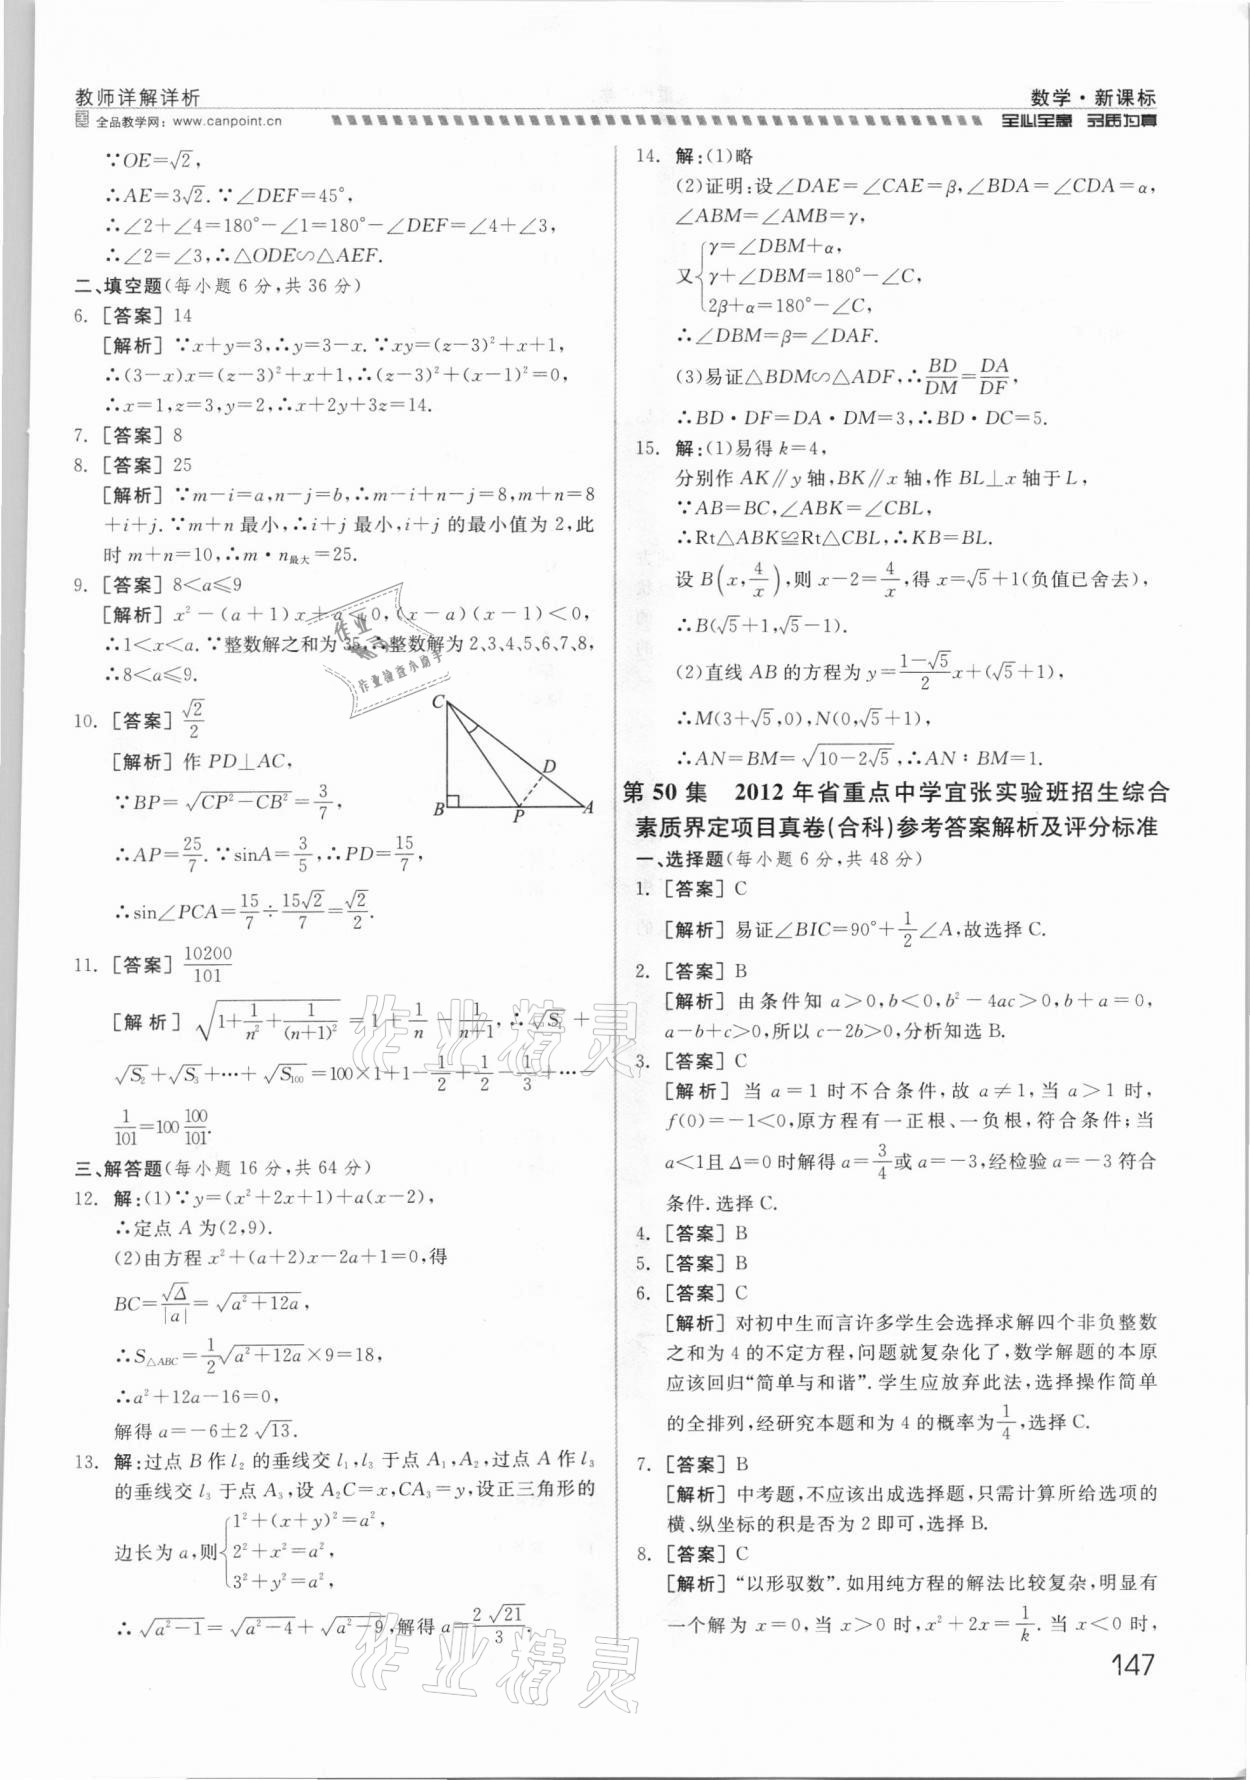 教师详解详析
全品教学网：www.canpoint.cn
数学·新课标
全心全意 品质为真
∵OE=√2，
∴AE=3√2. ∵∠DEF=45°，
∴∠2+∠4=180°-∠1=180°-∠DEF=∠4+∠3，
∴∠2=∠3，∴△ODE∽△AEF.
二、填空题(每小题 6 分，共 36 分)
6. [答案] 14
[解析] ∵x+y=3，∴y=3-x. ∵xy=(z-3)²+x+1，
∴(3-x)x=(z-3)²+x+1，∴(z-3)²+(x-1)²=0，
∴x=1，z=3，y=2，∴x+2y+3z=14.
7. [答案] 8
8. [答案] 25
[解析] ∵m-i=a，n-j=b，∴m-i+n-j=8，m+n=8
+i+j. ∵m+n 最小，∴i+j 最小，i+j 的最小值为 2，此
时 m+n=10，∴m·n最大=25.
9. [答案] 8<a≤9
[解析] x²-(a+1)x+a<0，(x-a)(x-1)<0，
∴1<x<a. ∵整数解之和为 35，∴整数解为 2、3、4、5、6、7、8，
∴8<a≤9.
10. [答案] √2/2
[解析] 作 PD⊥AC，
∵BP=√(CP²-CB²)=3/7，
∴AP=25/7. ∵sinA=3/5，∴PD=15/7，
∴sin∠PCA=15/7÷15√2/7=√2/2.
C
D
B
P
A
11. [答案] 10200/101
[解析] √(1+1/n²+1/(n+1)²)=1+1/n-1/(n+1)，∴√S₁+
√S₂+√S₃+…+√S₁₀₀=100×1+1-1/2+1/2-1/3+…
1/101=100 100/101.
三、解答题(每小题 16 分，共 64 分)
12. 解：(1)∵y=(x²+2x+1)+a(x-2)，
∴定点 A 为(2，9).
(2)由方程 x²+(a+2)x-2a+1=0，得
BC=√Δ/|a|=√(a²+12a)，
∴S△ABC=1/2√(a²+12a)×9=18，
∴a²+12a-16=0，
解得 a=-6±2√13.
13. 解：过点 B 作 l₂ 的垂线交 l₁，l₃ 于点 A₁，A₂，过点 A 作 l₃
的垂线交 l₃ 于点 A₃，设 A₂C=x，CA₃=y，设正三角形的
边长为 a，则{1²+(x+y)²=a²，
2²+x²=a²，
3²+y²=a²，
∴√(a²-1)=√(a²-4)+√(a²-9)，解得 a=2√21/3.
14. 解：(1)略
(2)证明：设∠DAE=∠CAE=β，∠BDA=∠CDA=α，
∠ABM=∠AMB=γ，
又{γ=∠DBM+α，
γ+∠DBM=180°-∠C，
2β+α=180°-∠C，
∴∠DBM=β=∠DAF.
(3)易证△BDM∽△ADF，∴BD/DM=DA/DF，
∴BD·DF=DA·DM=3，∴BD·DC=5.
15. 解：(1)易得 k=4，
分别作 AK∥y 轴，BK∥x 轴，作 BL⊥x 轴于 L，
∵AB=BC，∠ABK=∠CBL，
∴Rt△ABK≌Rt△CBL，∴KB=BL.
设 B(x，4/x)，则 x-2=4/x，得 x=√5+1(负值已舍去)，
∴B(√5+1，√5-1).
(2)直线 AB 的方程为 y=(1-√5)/2 x+(√5+1)，
∴M(3+√5，0)，N(0，√5+1)，
∴AN=BM=√(10-2√5)，∴AN∶BM=1.
第 50 集 2012 年省重点中学宜张实验班招生综合
素质界定项目真卷(合科)参考答案解析及评分标准
一、选择题(每小题 6 分，共 48 分)
1. [答案] C
[解析] 易证∠BIC=90°+1/2∠A，故选择 C.
2. [答案] B
[解析] 由条件知 a>0，b<0，b²-4ac>0，b+a=0，
a-b+c>0，所以 c-2b>0，分析知选 B.
3. [答案] C
[解析] 当 a=1 时不合条件，故 a≠1，当 a>1 时，
f(0)=-1<0，原方程有一正根、一负根，符合条件；当
a<1且 Δ=0 时解得 a=3/4或 a=-3，经检验 a=-3 符合
条件. 选择 C.
4. [答案] B
5. [答案] B
6. [答案] C
[解析] 对初中生而言许多学生会选择求解四个非负整数
之和为 4 的不定方程，问题就复杂化了，数学解题的本原
应该回归“简单与和谐”. 学生应放弃此法，选择操作简单
的全排列，经研究本题和为 4 的概率为1/4，选择 C.
7. [答案] B
[解析] 中考题，不应该出成选择题，只需计算所给选项的
横、纵坐标的积是否为 2 即可，选择 B.
8. [答案] C
[解析] “以形驭数”. 如用纯方程的解法比较复杂，明显有
一个解为 x=0，当 x>0 时，x²+2x=1/k. 当 x<0 时，
147
作业
作业检查小助手
作业精灵
作业精灵